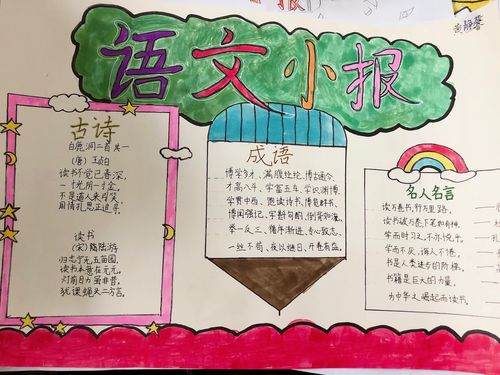 语文小报
古诗
白鹿洞二首 其一
(唐) 王贞白
读书不觉已春深,
一寸光阴一寸金。
不是道人来引笑,
周情孔思正追寻。
读书
(宋) 陆游
归志宁无五亩园,
读书本意在元元。
灯前目力虽非昔,
犹课蝇头二万言。
成语
博学多才、满腹经纶、博古通今、
才高八斗、学富五车、学识渊博、
学贯中西、饱读诗书、博览群书、
博闻强记、字斟句酌、倒背如流、
举一反三、循序渐进、专心致志、
一丝不苟、夜以继日、开卷有益。
名人名言
读万卷书,行万里路。
读书破万卷,下笔如有神。
学而时习之,不亦悦乎。
学而不厌,诲人不倦。
书是人类进步的阶梯。
书籍是巨大的力量。
为中华之崛起而读书